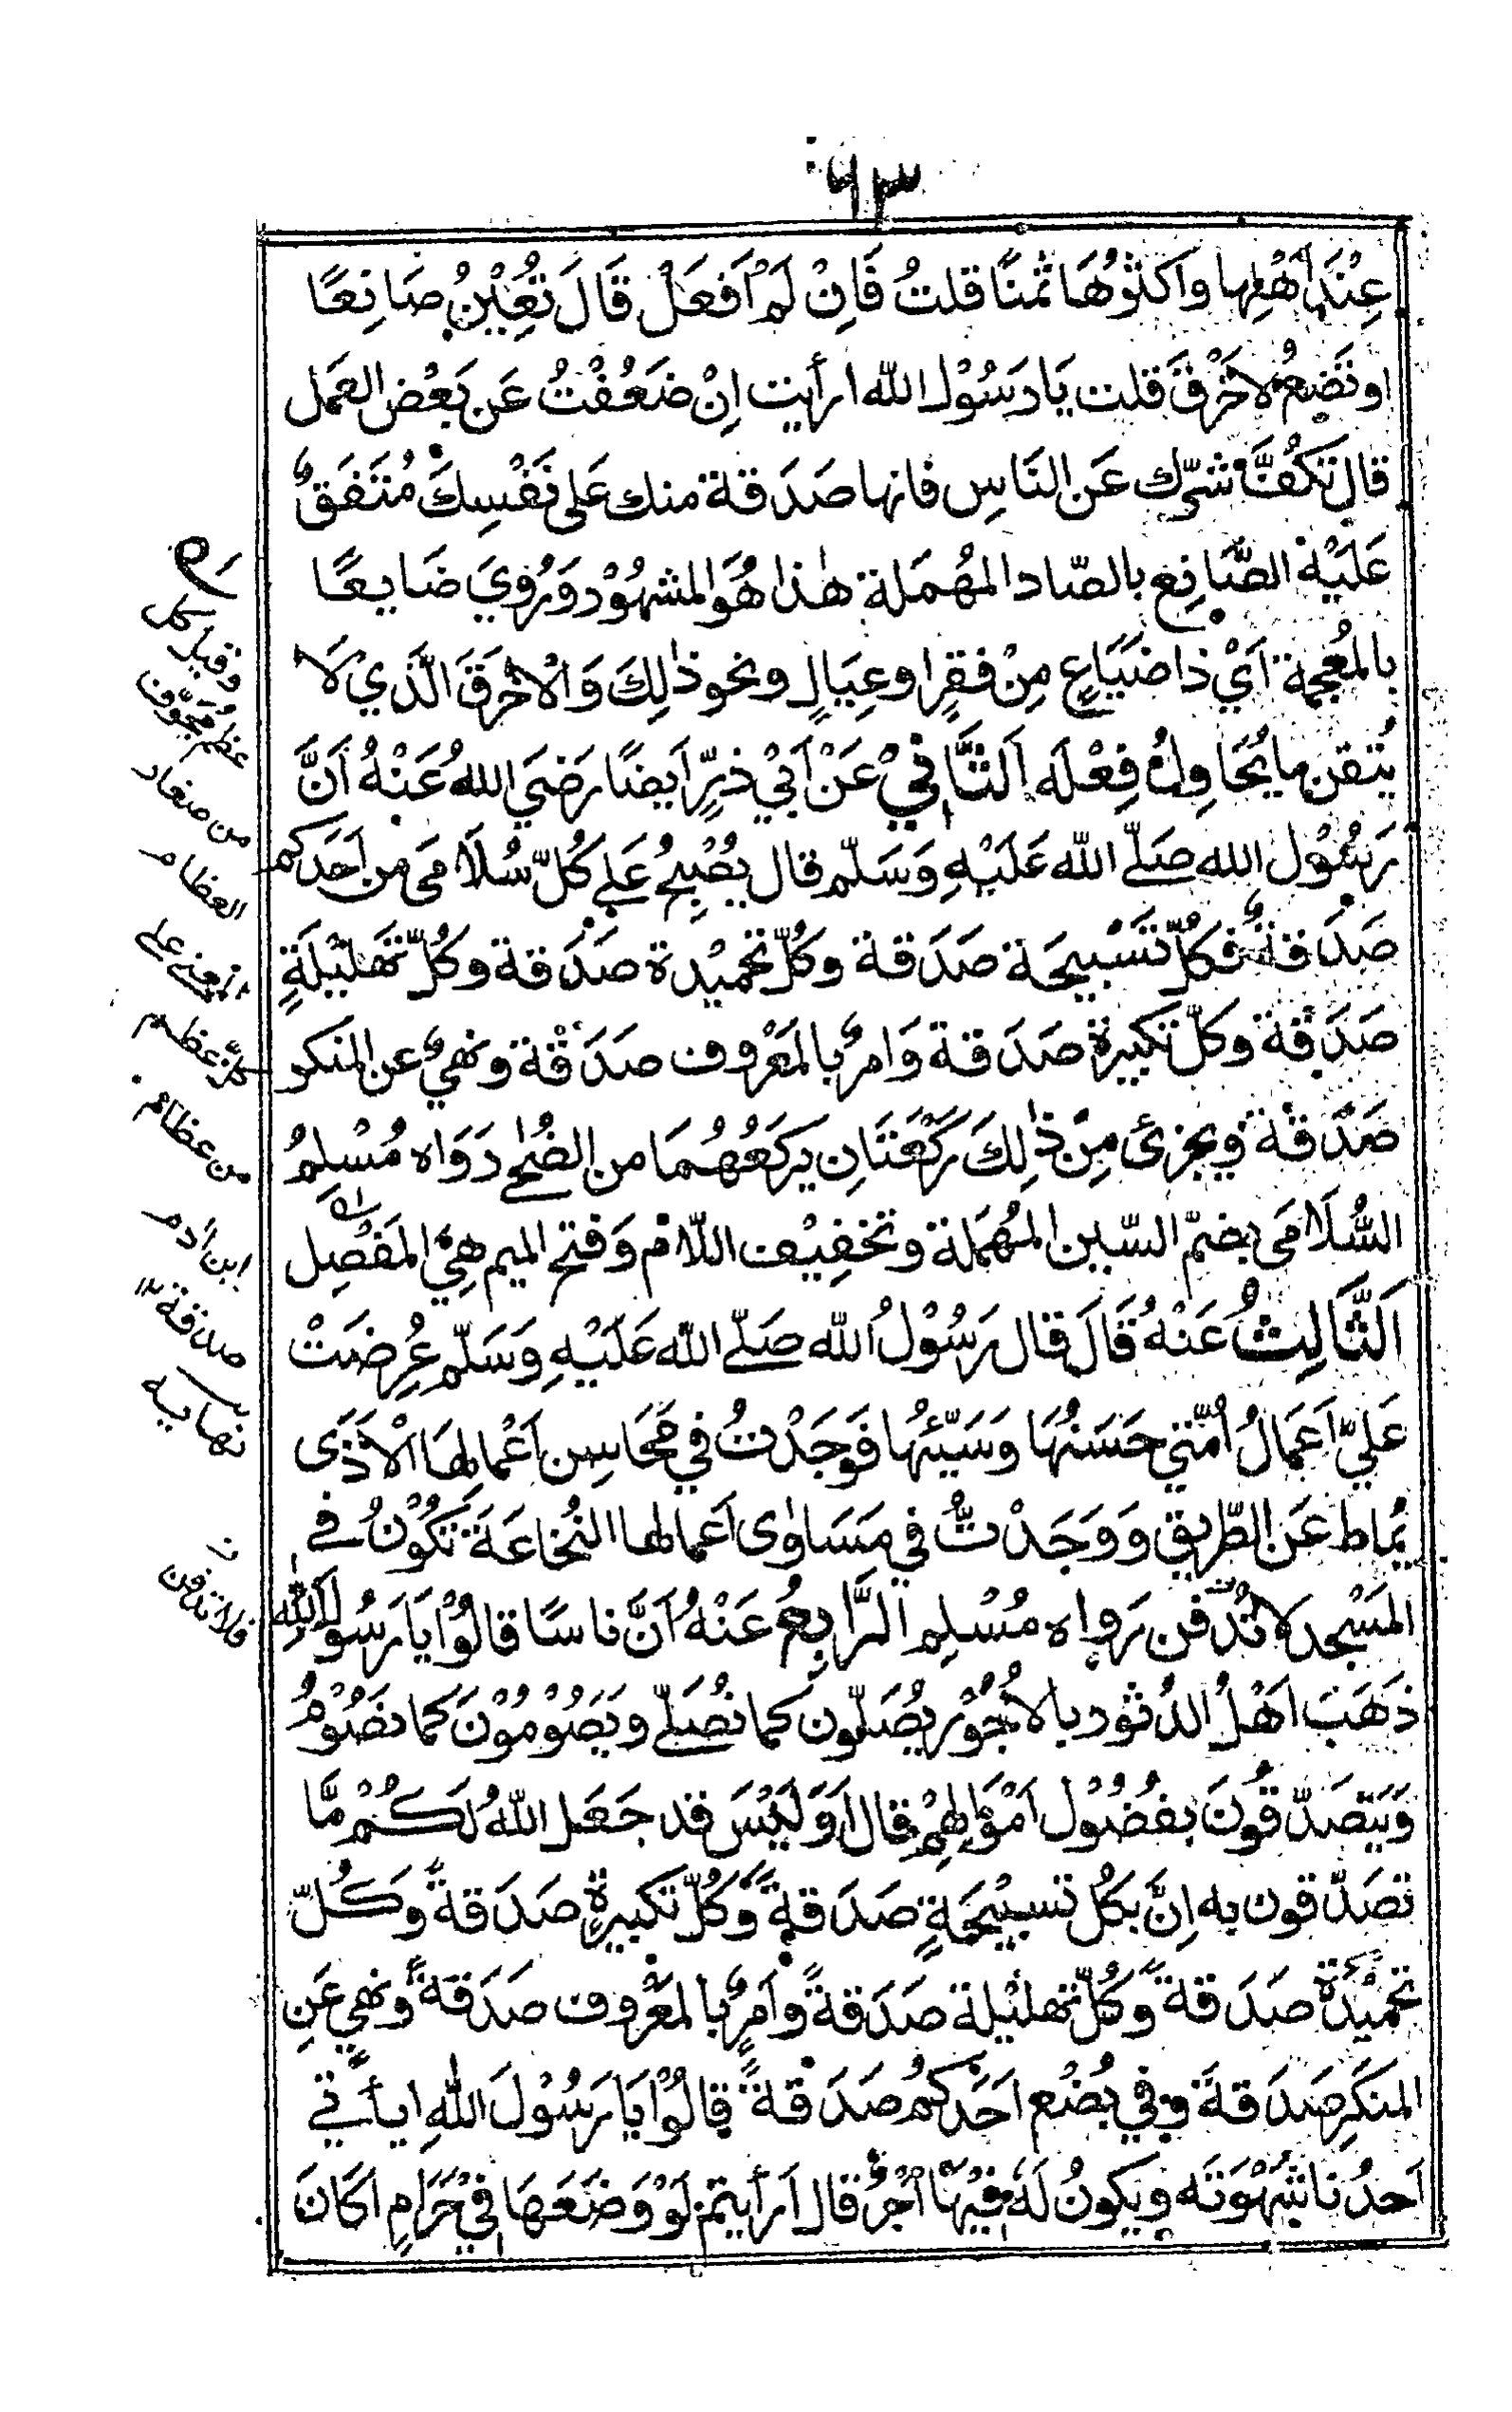 ٦٣
عِنْدَ اَهْلِهَا وَاَكثَرُهَا ثَمنًا قلتُ فَاِنْ لَمْ اَفعَلْ قَالَ تُعِيْنُ صَانِعًا
اوتَصْنَعُ لاَخْرَقَ قلت يَا رَسُوْل الله ارأيت اِنْ ضَعُفْتُ عَن بَعْض العَمَل
قال تَكُفُّ شَرَّك عَن النَاسِ فانها صَدَقة منك عَلى نَفْسِكَ مُتَفَقٌ
عَلَيْهِ الصَّانِع بالصّاد المهُمَلة هٰذا هُوَ المشهُوْر وَرُوِيَ ضَايعًا
بالمُعجَمة اَيْ ذا ضيَاعٍ مِنْ فقرٍ اوعِيَالٍ ونحو ذٰلِكَ وَالْاَخْرَقَ الَّذِي لَا
يُتقن ما يُحَاوِلُ فِعْلَه اَلثَّانِيْ عَنْ اَبِيْ ذرٍّ اَيضًا رَضيَ اللهُ عَنْهُ اَنَّ
رَسُوْل الله صَلّے الله عَلَيْهِ وَسَلّم قال يُصْبِحُ عَلے كُلّ سُلَامَى من اَحَدكم
صَدَقةٌ فكُلّ تَسْبيحَة صَدَقة وكُلّ تحَميْدة صَدَقة وكُلّ تَهْلِيْلَةٍ
صَدَقة وكلّ تكبيرة صَدَقة وَامرٌ بالمَعْرُوف صَدَقْة ونَهيٌ عن المنكر
صَدَقة ويجزئ مِنْ ذٰلِكَ رَكْعَتَانِ يركَعُهُمَا من الضُحٰى رَوَاه مُسْلِمُ
السُّلَامَى بضمّ السّين المُهْمَلة وتخفِيْف اللّام وَفتح الميم هِيَ المَفصِل
اَلثَّالِثُ عَنْهُ قَالَ قال رَسُوْلُ الله صَلّے الله عَلَيْهِ وَسَلّم عُرِضَتْ
عَلَيَّ اَعمَالُ اُمَّتي حَسَنُهَا وَسَيِّئُهَا فَوَجَدْتُ فِي مَحَاسِن اَعْمالِهَا الْاَذَى
يُماط عَن الطّريق وَوَجَدْتُّ فِي مَسَاوٰى اَعمالها النُخاعَةَ تَكُوْنُ فے
المَسْجد لا تُدْفن رَواه مُسْلِم اَلرَّابعُ عَنْهُ اَنَّ ناسًا قالُوْا يَا رَسُوْل الله
ذَهَبَ اَهْلُ الدُثور بالاُجُوْر يُصَلّون كما نُصَلّے ويَصُوْمُوْنَ كما نصُوْمُ
وَيَتصَدّقُونَ بفُضُوْل اَمْوَالِهِمْ قال اَوَلَيْسَ قد جَعَل اللهُ لَكُمْ مَّا
تصَدّقون به اِنَّ بكُل تسبيْحَةٍ صَدَقةً وَكُلّ تكبيرةٍ صَدَقةً وَكُلّ
تحميْدةٍ صَدَقةً وَكُلّ تهليْلة صَدَقةً وامرٌ بالمَعْرُوف صَدَقةً ونهيٌ عَنِ
المنكَرِ صَدَقةً وفي بُضْع اَحَدكُم صَدَقةً قالُوْا يَا رَسُوْلَ اللهِ ايأتي
اَحدُنا شَهْوَتَه ويكونُ لَهُ فِيْهَا اَجْرٌ قال اَرأيتم لَوْ وَضَعَهَا فِيْ حَرَامٍ اكَانَ
وقيل كل
عظم مجوّف
من صغار
العظام
المعنے على
كلّ عظم
من عظام
ابن اٰدم
صدقة
نهايه
ن
فلا تدفن